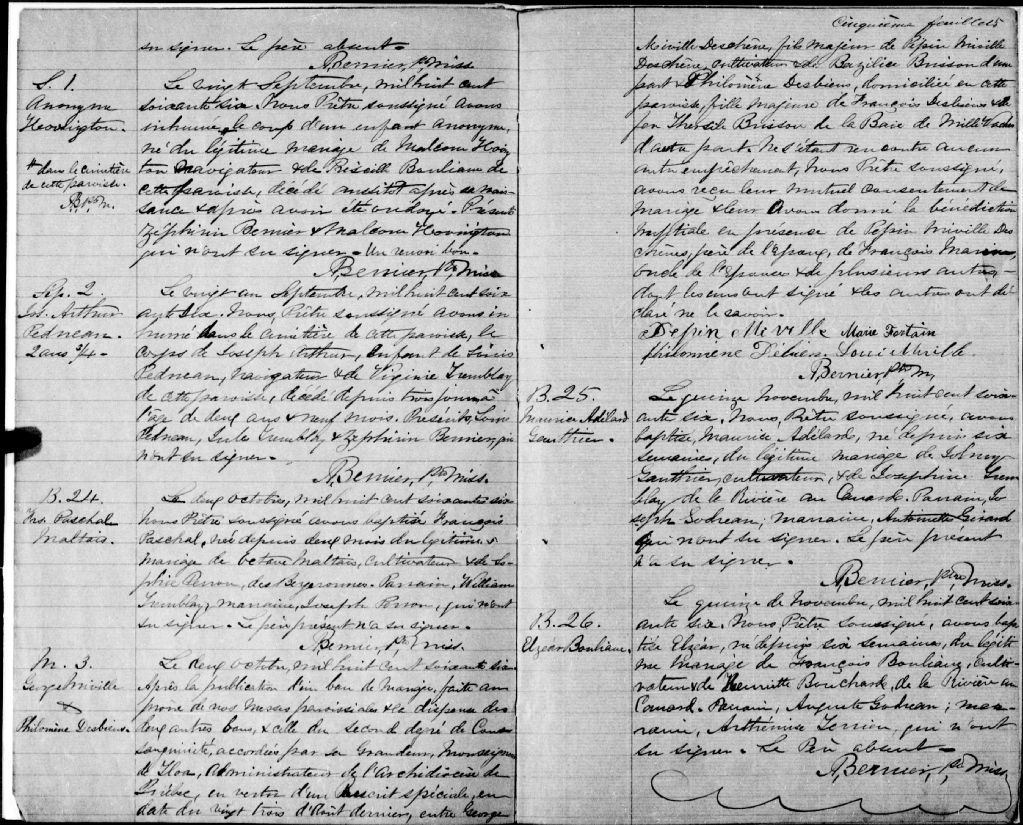 su signer. Le père absent.
A. Bernier, Ptre Miss
S. 1.
Anonyme
Hovington.
dans le cimétière
de cette paroisse.
A.B. Ptre M.
Le vingt Septembre, mil huit cent
soixante six. Nous Prêtre soussigné avons
inhumé, le corps d'un enfant anonyme,
né du légitime mariage de Malcom Hoving
ton navigateur & de Boulianne de
cette paroisse, décédé aussitôt après sa nais-
sance & après avoir été ondoyé. Présents
Zéphirin Bernier & Malcom Hovington
qui n'ont su signer. Un renvoi bon.
A. Bernier, Ptre Miss
Sp. 2.
Jos. Arthur
Pedneau.
2 ans 3/4.
Le vingt un Septembre, mil huit cent soix
ante six. Nous, Prêtre soussigné avons in
humé dans le cimétière de cette paroisse, le
corps de Joseph Arthur, enfant de Louis
Pedneau, Navigateur & de Virginie Tremblay
de cette paroisse, décédé depuis trois jours à
l'age de deux ans & neuf mois. Présents, Louis
Pedneau, Tremblay & Zéphirin Bernier, qui
n'ont su signer.
A. Bernier, Ptre Miss.
B. 24.
Frs. Paschal
Maltais.
Le deux octobre, mil huit cent soixante six
nous Prêtre soussigné avons baptisé François
Paschal, né depuis deux mois du légitime
mariage de octave Maltais, cultivateur & de So-
phie Perron, des Bergeronnes. Parrain, William
Tremblay, marraine, Perron, qui n'ont
su signer. Le père présent n'a su signer.
A. Bernier, Ptre Miss.
M. 3.
George Miville
&
Philomène Desbiens.
Le deux octobre, mil huit cent soixante six
Après la publication d'un ban de Mariage, faite au
prône de nos Messes paroissiales & la dispense des
deux autres bans, & celle du second degré de Con-
sanguinité, accordée par sa Grandeur, Monseigneur
de Tloa, Administrateur de l'archidiocèse de
Québec, en vertu d'un Rescrit spéciale, en
date du vingt trois d'Août dernier, entre George
Cinquième feuillet
Miville Deschène, fils majeur de Pépin Miville
Deschène, cultivateur & de Bazilice Buison d'une
part & Philomène Desbiens, domiciliée en cette
paroisse, fille majeure de François Desbiens & de
feu Thersile Buison de la Baie de Mille Vaches
d'autre part. Ne s'étant rencontré aucun
autre empêchement, Nous Prêtre soussigné,
avons reçu leur mutuel consentement de
mariage & leur avons donné la bénédiction
nuptiale en présense de Pépin Miville Des
chènes, père de l'époux, de François
oncle de l'épouse & de plusieurs autres
dont les uns ont signé & les autres ont dé-
claré ne le savoir.
Pepin Meville Marie Fortain
philomene Débiens Loui Miville
A. Bernier, Ptre M.
B. 25.
Maurice Adélard
Gauthier.
Le quinze Novembre, mil huit cent soix-
ante six. Nous, Prêtre soussigné, avons
baptisé, Maurice Adélard, né depuis six
semaines, du légitime mariage de
Gauthier, cultivateur, & de Josephine Trem
blay de la Rivière au Canard. Parrain, Jo
seph Godreau; marraine, Antoinette Girard
qui n'ont su signer. Le père présent
n'a su signer.
A. Bernier, Ptre Miss.
B. 26.
Elzéar Boulianne.
Le quinze de Novembre, mil huit cent soix-
ante six. Nous, Prêtre soussigné, avons bap
tisé Elzéar, né depuis six semaines, du légiti
me mariage de François Boulianne, Culti-
vateur & de Henriette Bouchard, de la Rivière au
Canard. Parrain, Auguste Godreau; mar-
raine, Arthémise qui n'ont
su signer. Le Père absent.
A. Bernier, Ptre Miss.